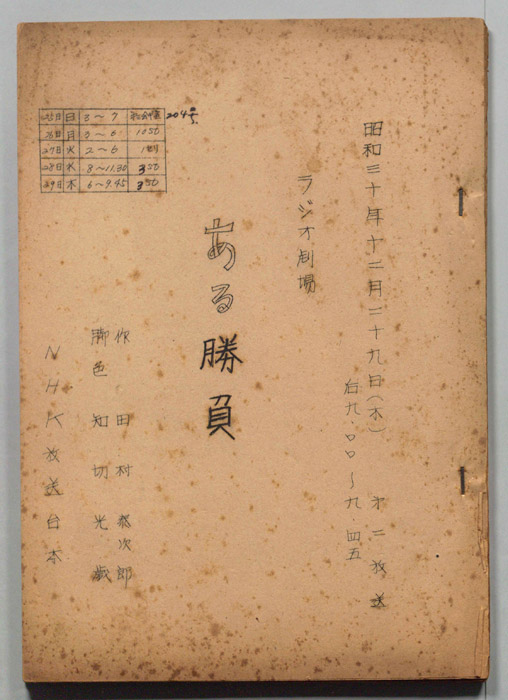 昭和三十年十二月二十九日（木）
后九・〇〇～九・四五
才二放送
ラジオ劇場
ある勝負
作 田村泰次郎
脚色 知切光歳
NHK放送台本
25日 日 3～7 204号
26日 月 3～6 1050
27日 火 2～6
28日 水 8～11.30 350
29日 木 6～9.45 350